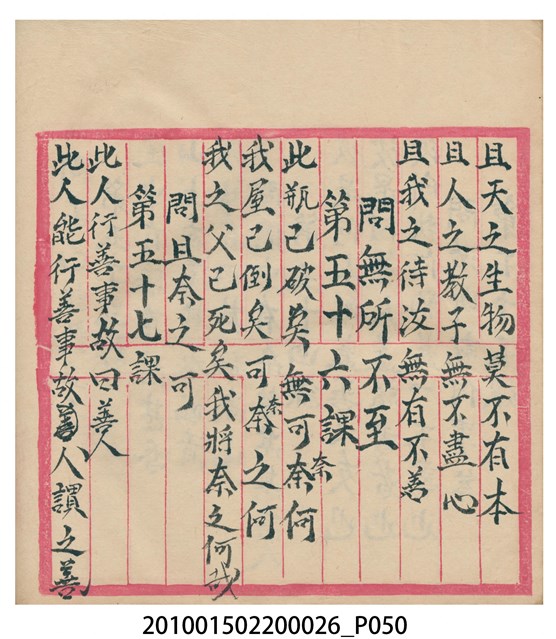 且天之生物莫不有本
且人之教子無不盡心
且我之待汝無有不善
問無所不至
第五十六課
此瓶已破矣無可奈何
奈
我屋已倒矣可奈之何
奈
我之父已死矣我將奈之何哉
問且奈之可
第五十七課
此人行善事故曰善人
此人能行善事故善人謂之善
201001502200026_P050